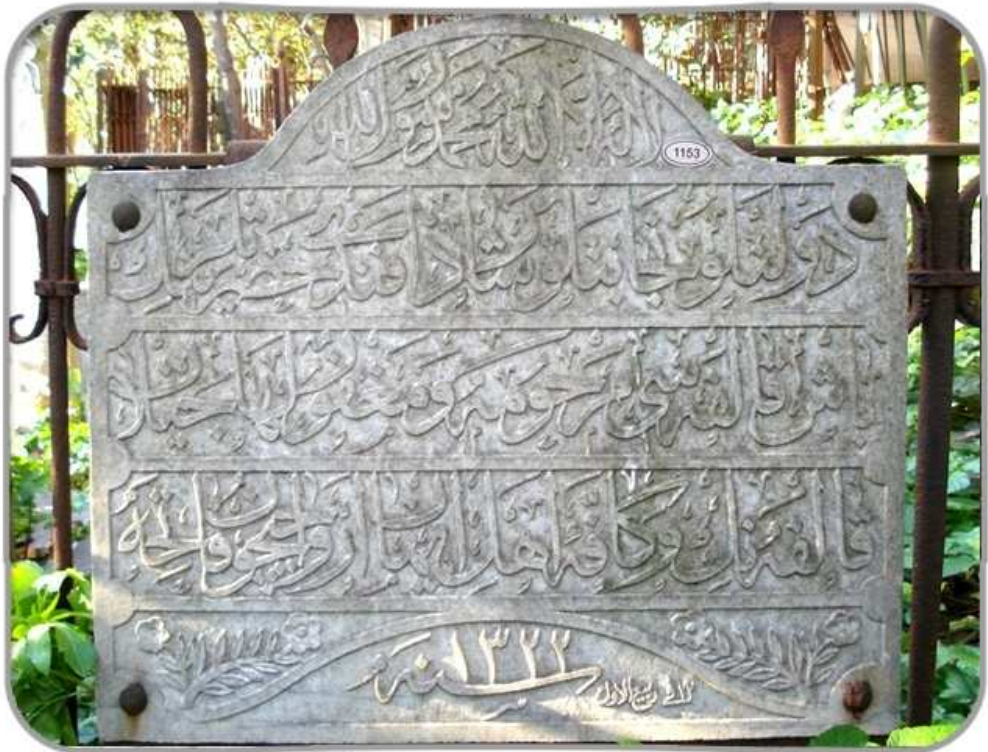 لا اله الا الله محمد رسول الله
1153
دولتلو نجابتلو رشاد افندی حضرتلرینك
باش قالفه سی مرحومه و مغفور لها
قالفه نك و كافه اهل ایمان ارواحیچون فاتحه
سنه ١٣٢٢
فی ربیع الاول